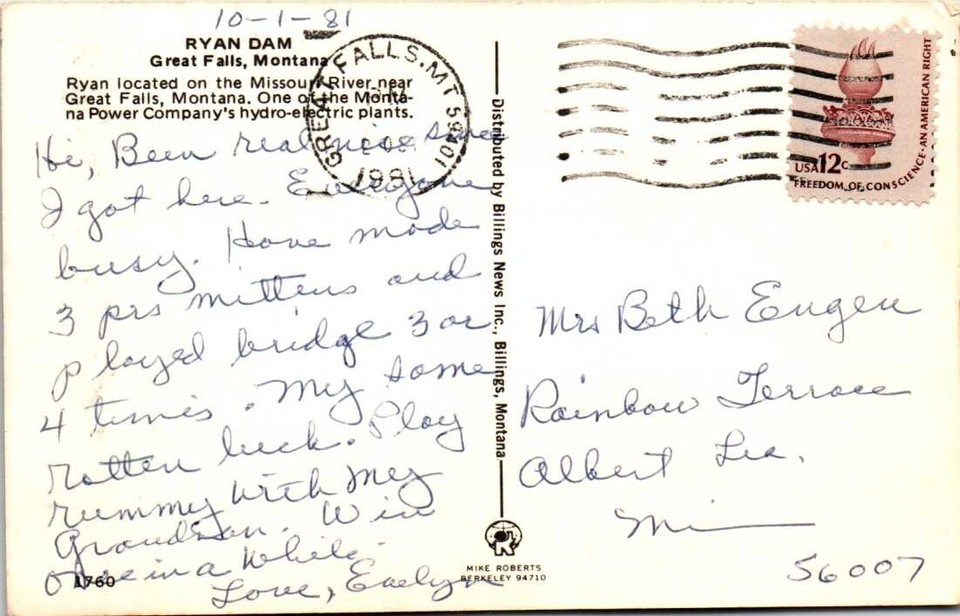 10-1-81
RYAN DAM
Great Falls, Montana
Ryan located on the Missouri River near
Great Falls, Montana. One of the Monta-
na Power Company's hydro-electric plants.
Hi, Been real nice since
I got here. Everyone
busy. Have made
3 prs mittens and
played bridge 3 or
4 times. My same
rotten luck. Play
rummy with my
Grandson. Win
once in a while.
Love, Evelyn
1760
GREAT FALLS, MT 59401
1981
Distributed by Billings News Inc., Billings, Montana
MIKE ROBERTS
BERKELEY 94710
USA 12c
FREEDOM OF CONSCIENCE-AN AMERICAN RIGHT
Mrs Beth Eugen
Rainbow Terrace
Albert Lea,
Min
56007